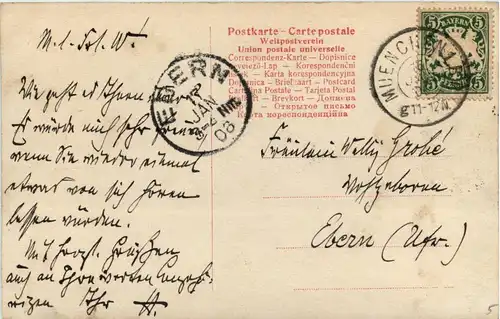 Postkarte - Carte postale
Weltpostverein
Union postale universelle
Correspondenz-Karte — Dopisnice
Levelező-Lap — Korespondenční
— Karta korespondencyjna
Dopisnica — Briefkaart — Postcard
Cartolina Postale — Tarjeta Postal
— Brevkort — Дописна —
— Открытое письмо —
Карта кореспонденцiйна
5 BAYERN 5
MUENCHEN
11-12 V
EBERN
JAN
3-4 Nm
08
M. l. Frl. W.
Wie geht es Ihnen
Es würde mich sehr freuen
wenn Sie wieder einmal
etwas von sich hören
lassen würden.
Mit herzl. Grüßen
auch an Ihre werten Angehö-
rigen Ihr
Fräulein Welly Grohé
Wohlgeboren
Ebern (Ufr.)
5